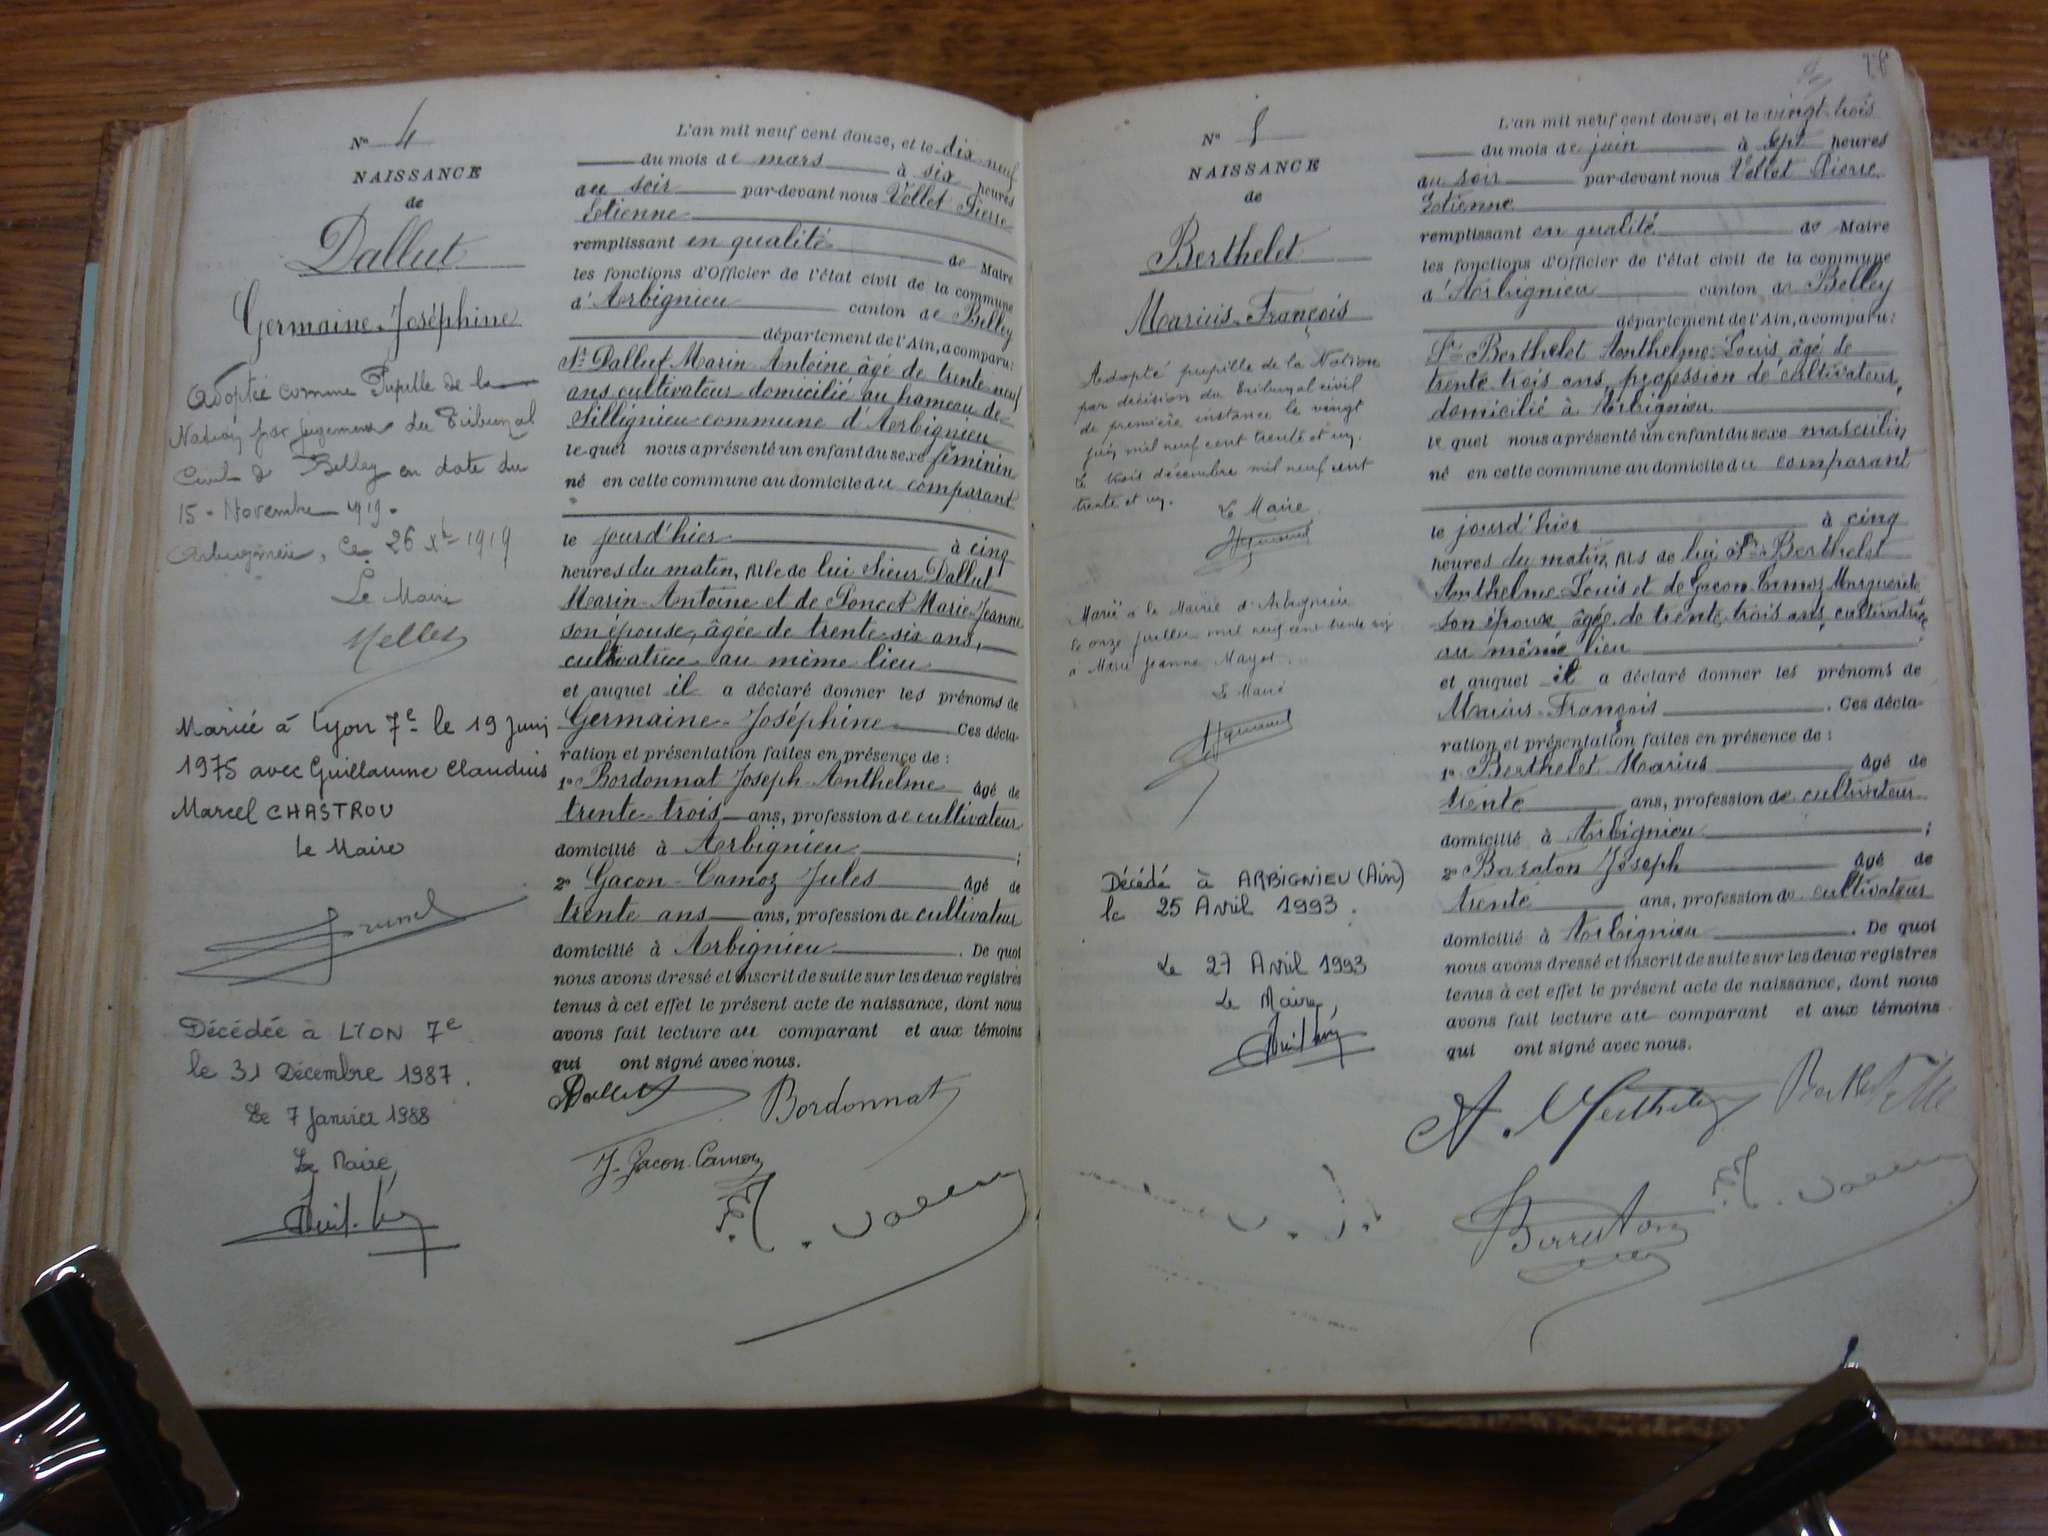 N° 4
NAISSANCE
de
Dallut
Germaine-Joséphine
Adoptée comme Pupille de la
Nation par jugement du Tribunal
Civil de Belley en date du
15 - Novembre 1919.
Arbignieu, le 26 Xbre 1919
Le Maire
Mariée à Lyon 7e le 19 Juin
1975 avec Guillaume Claudius
Marcel CHASTROU
le Maire
Décédée à LYON 7e
le 31 Décembre 1987.
Le 7 Janvier 1988
Le Maire,
L'an mil neuf cent douze, et le dix neuf
du mois de mars à six heures
du soir par-devant nous Vollet Pierre
Etienne
remplissant en qualité de Maire
les fonctions d'Officier de l'état civil de la commune
d'Arbignieu canton de Belley
département de l'Ain, a comparu:
Sr Dallut Marin Antoine âgé de trente neuf
ans cultivateur domicilié au hameau de
Sillignieu commune d'Arbignieu
lequel nous a présenté un enfant du sexe féminin
né en cette commune au domicile du comparant
le jourd'hier à cinq
heures du matin, née de lui Sieur Dallut
Marin-Antoine et de Poncet Marie-Jeanne
son épouse, âgée de trente-six ans,
cultivatrice au même lieu
et auquel il a déclaré donner les prénoms de
Germaine-Joséphine Ces décla-
ration et présentation faites en présence de :
1° Bordonnat Joseph-Anthelme âgé de
trente-trois ans, profession de cultivateur
domicilié à Arbignieu ;
2° Gacon-Camoz Jules âgé de
trente ans ans, profession de cultivateur
domicilié à Arbignieu . De quoi
nous avons dressé et inscrit de suite sur les deux registres
tenus à cet effet le présent acte de naissance, dont nous
avons fait lecture au comparant et aux témoins
qui ont signé avec nous.
Dallut Bordonnat
J. Gacon-Camoz
N° 5
NAISSANCE
de
Berthelet
Marius-François
Adopté pupille de la Nation
par décision du tribunal civil
de première instance le vingt
juin mil neuf cent trente et un.
Le trois décembre mil neuf cent
trente et un.
Le Maire
Marié à la Mairie d'Arbignieu
le onze juillet mil neuf cent trente six
à Marie Jeanne Mayot.
Le Maire
Décédé à ARBIGNIEU (Ain)
le 25 Avril 1993.
Le 27 Avril 1993
Le Maire,
L'an mil neuf cent douze, et le vingt-trois
du mois de juin à sept heures
du soir par-devant nous Vollet Pierre
Etienne
remplissant en qualité de Maire
les fonctions d'Officier de l'état civil de la commune
d'Arbignieu canton de Belley
département de l'Ain, a comparu:
Sr Berthelet Anthelme-Louis âgé de
trente trois ans, profession de cultivateur,
domicilié à Arbignieu
lequel nous a présenté un enfant du sexe masculin
né en cette commune au domicile du comparant
le jourd'hier à cinq
heures du matin, fils de lui Sr Berthelet
Anthelme-Louis et de Gacon-Camoz Marguerite
son épouse âgée de trente-trois ans, cultivatrice
au même lieu
et auquel il a déclaré donner les prénoms de
Marius-François . Ces décla-
ration et présentation faites en présence de :
1° Berthelet Marius âgé de
trente ans, profession de cultivateur
domicilié à Arbignieu ;
2° Baraton Joseph âgé de
trente ans, profession de cultivateur
domicilié à Arbignieu . De quoi
nous avons dressé et inscrit de suite sur les deux registres
tenus à cet effet le présent acte de naissance, dont nous
avons fait lecture au comparant et aux témoins
qui ont signé avec nous.